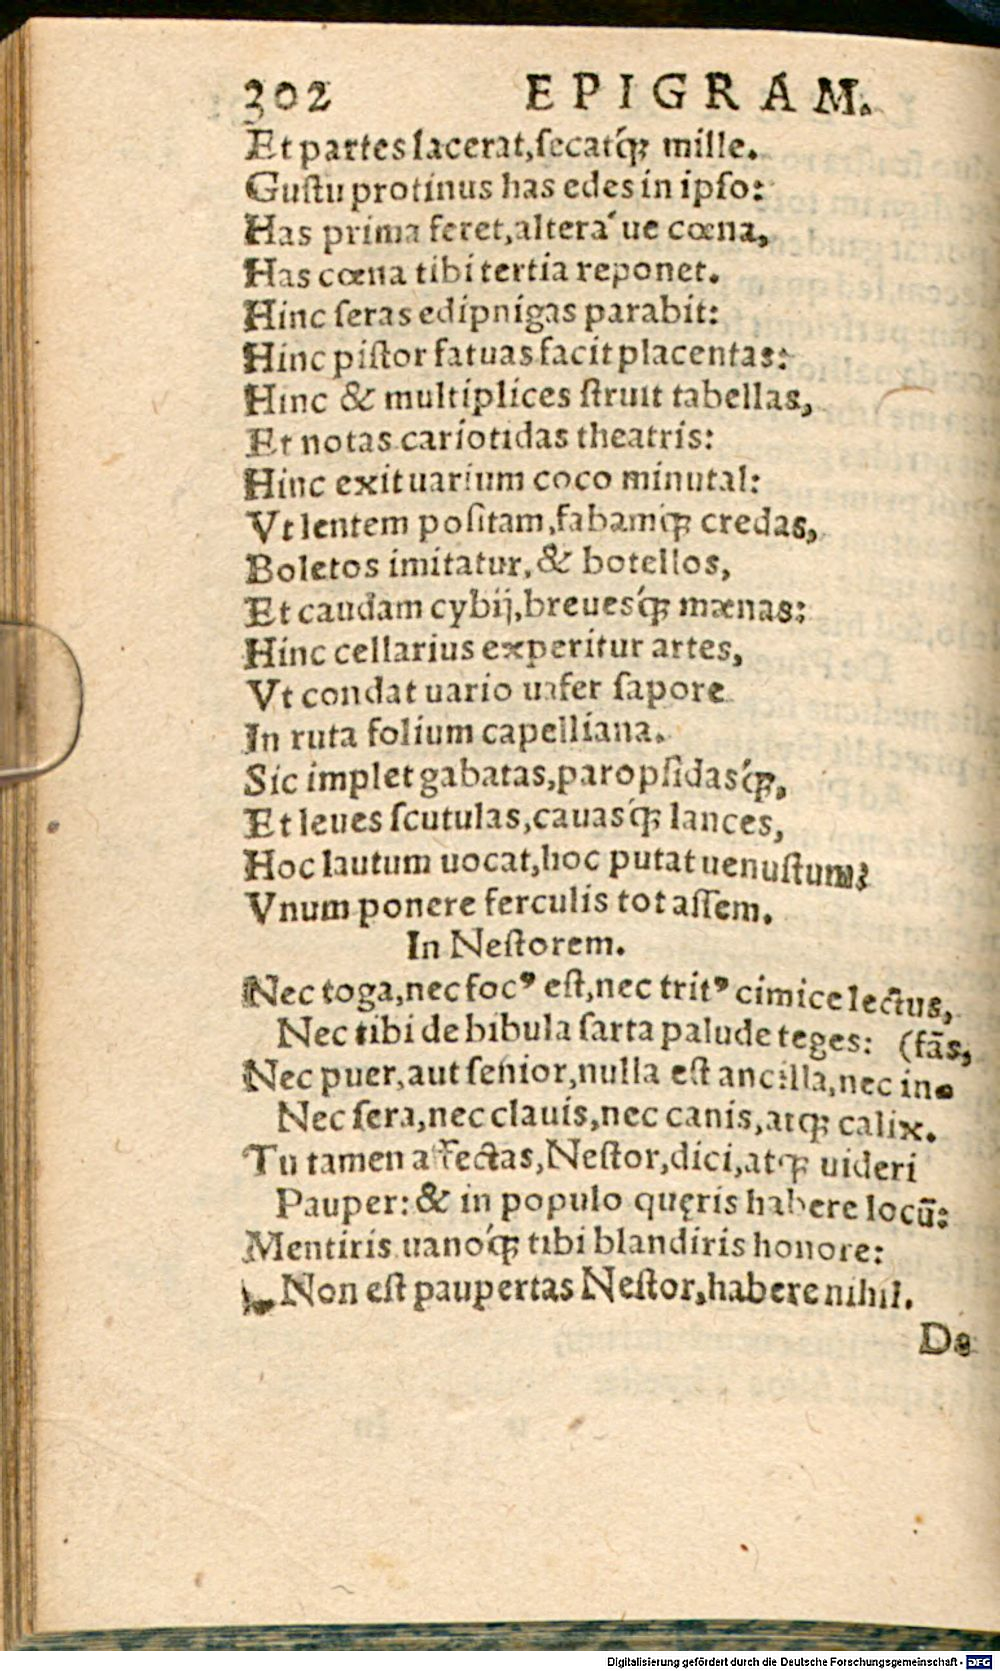 302 EPIGRAM.
Et partes lacerat, ſecatq́ꝫ mille.
Guſtu protinus has edes in ipſo:
Has prima feret, alterá ue cœna,
Has cœna tibi tertia reponet.
Hinc ſeras edipnigas parabit:
Hinc piſtor fatuas facit placentas:
Hinc & multiplices ſtruit tabellas,
Et notas cariotidas theatris:
Hinc exit uarium coco minutal:
Vt lentem poſitam, fabamq́ꝫ credas,
Boletos imitatur, & botellos,
Et caudam cybij, breuesq́ꝫ mænas:
Hinc cellarius experitur artes,
Vt condat uario uafer ſapore
In ruta folium capelliana.
Sic implet gabatas, paropſidasq́ꝫ,
Et leues ſcutulas, cauasq́ꝫ lances,
Hoc lautum uocat, hoc putat uenuſtum:
Vnum ponere ferculis tot aſſem.
In Neſtorem.
Nec toga, nec focꝰ eſt, nec tritꝰ cimice lectus,
Nec tibi de bibula ſarta palude teges: (fãs,
Nec puer, aut ſenior, nulla eſt ancilla, nec in-
Nec ſera, nec clauis, nec canis, atqꝫ calix.
Tu tamen affectas, Neſtor, dici, atqꝫ uideri
Pauper: & in populo quęris habere locũ:
Mentiris uanoq́ꝫ tibi blandiris honore:
Non eſt paupertas Neſtor, habere nihil.
De
Digitalisierung gefördert durch die Deutsche Forschungsgemeinschaft - DFG